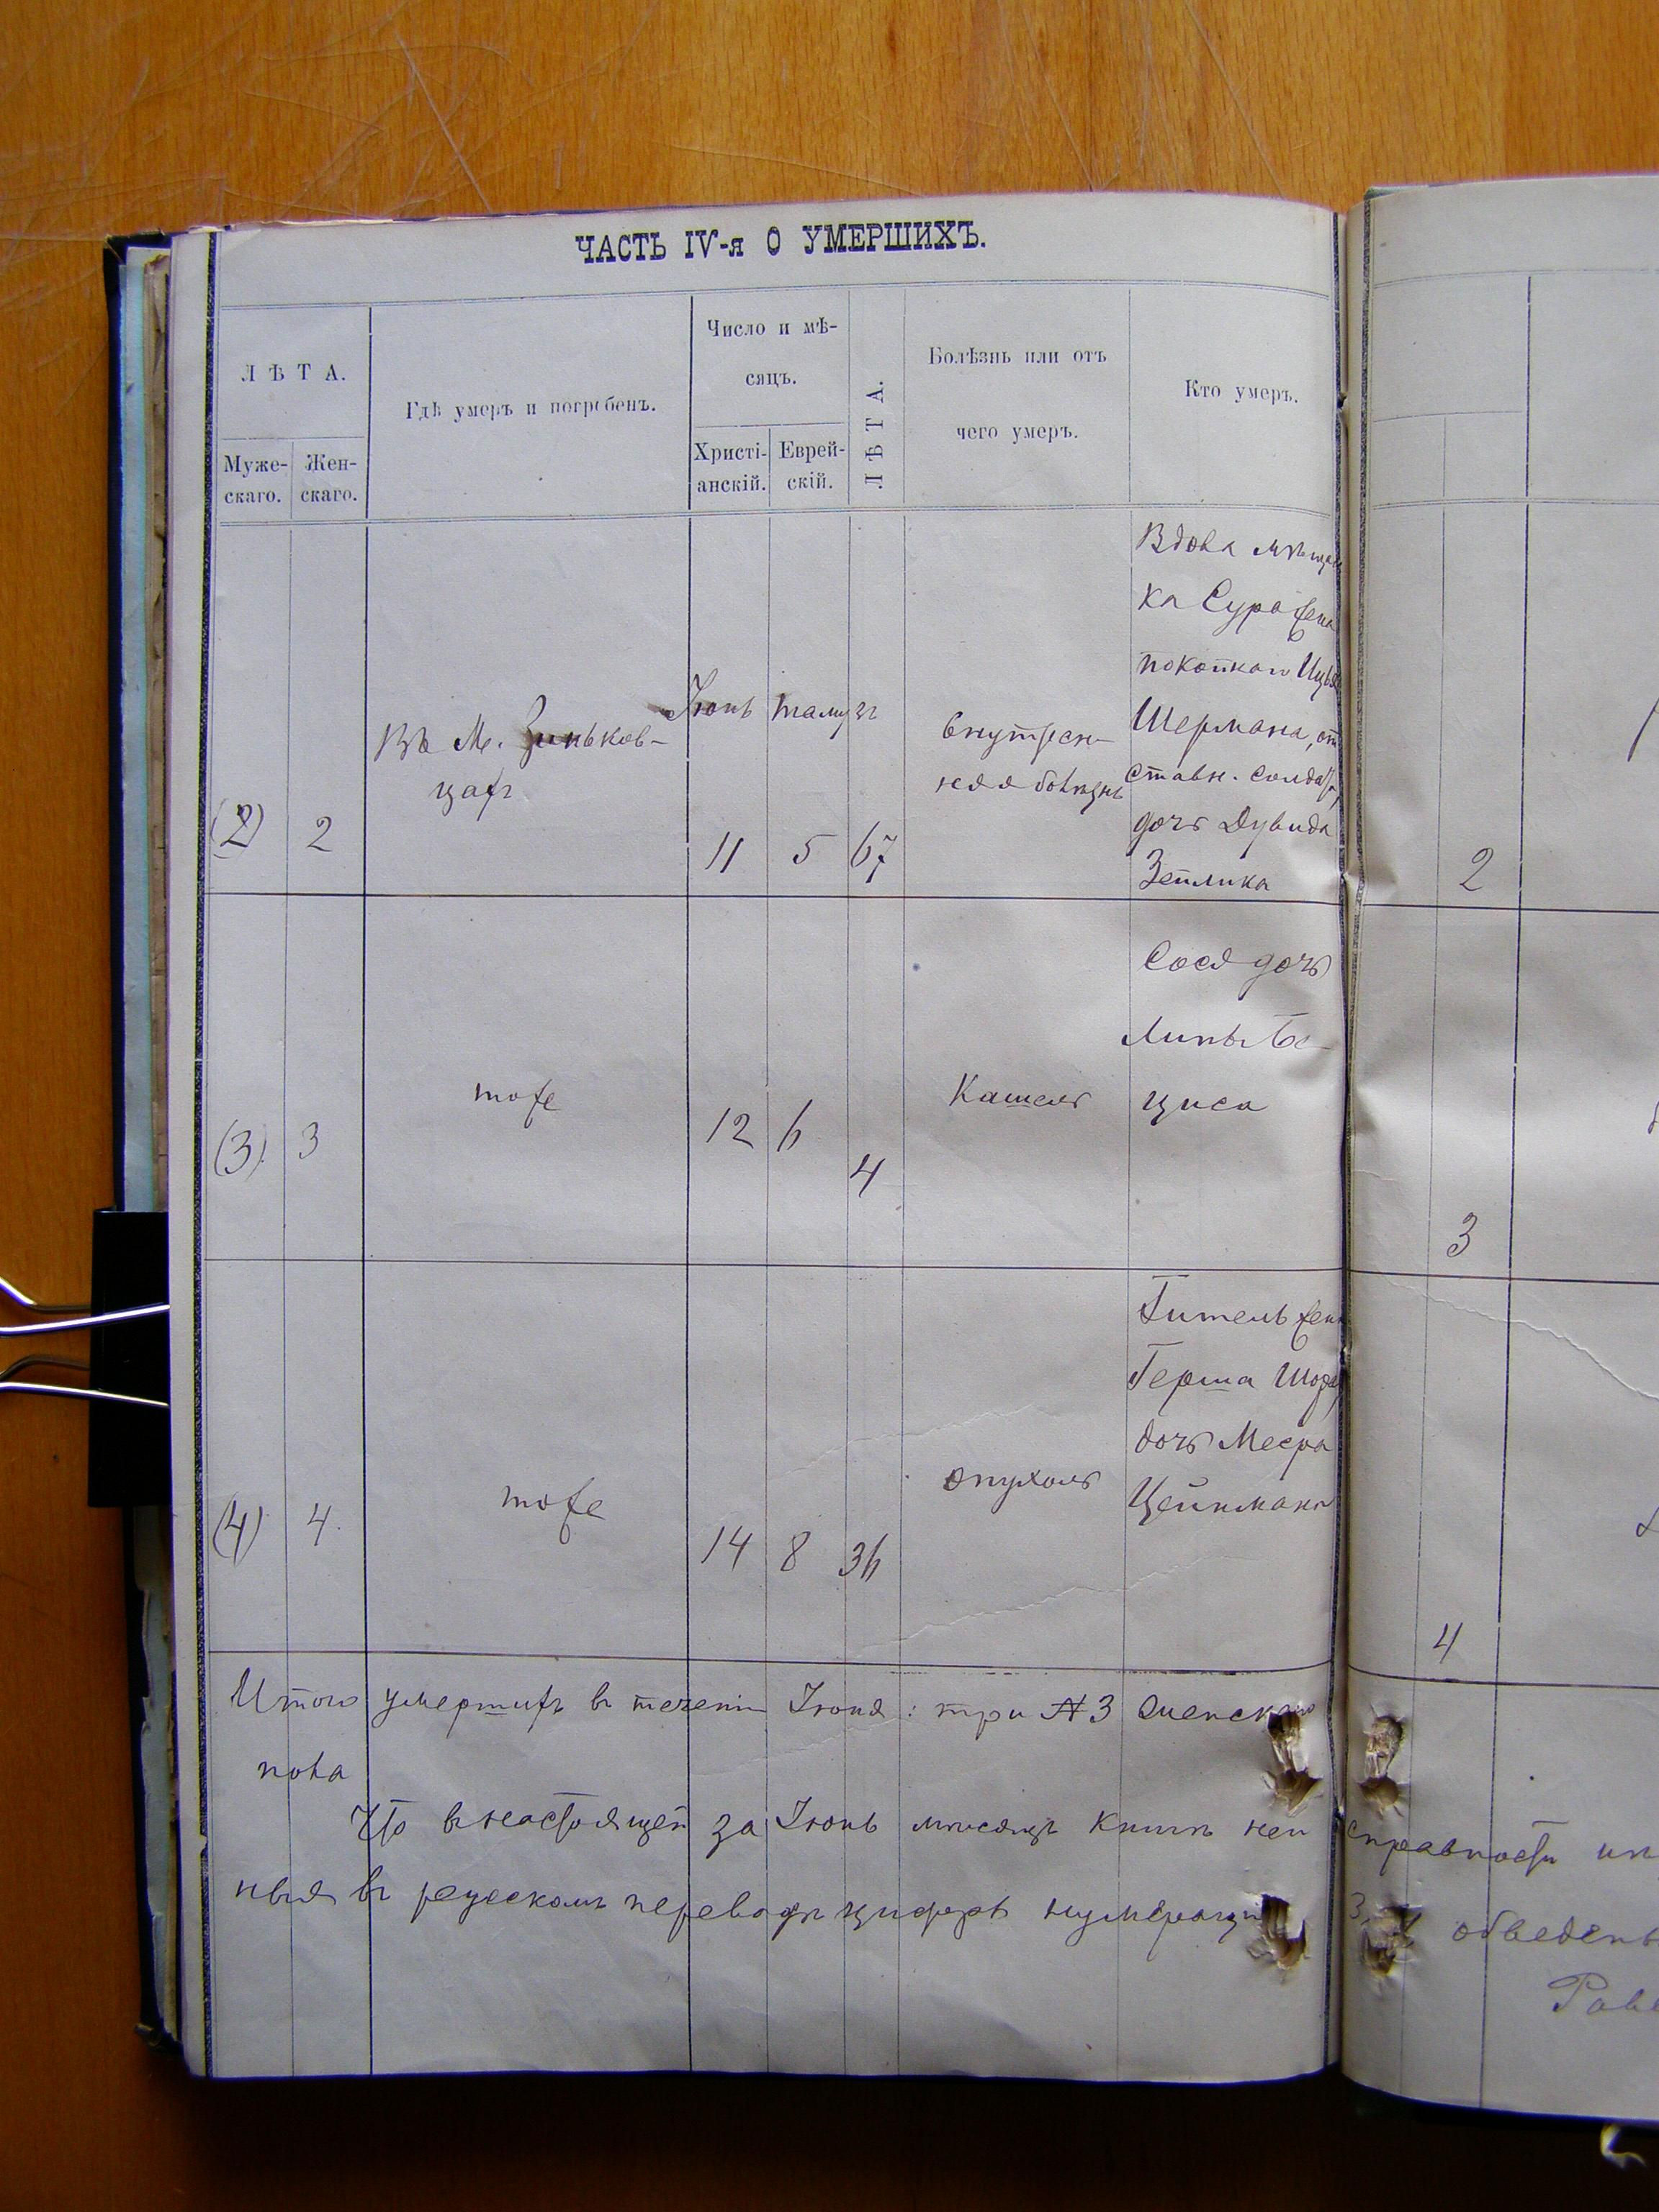 ЧАСТЬ IV-я О УМЕРШИХЪ.
ЛѢТА.
Муже-
скаго.
Жен-
скаго.
Гдѣ умеръ и погребенъ.
Число и мѣ-
сяцъ.
Христі-
анскій.
Еврей-
скій.
ЛѢТА.
Болѣзнь или отъ
чего умеръ.
Кто умеръ.
(2)
2
Въ М. Зиньков-
цахъ
Іюнь
11
Тамузъ
5
67
внутрен-
няя болѣзнь
Вдова мѣщан
ка Сура жена
покойнаго
Шермана, от
ставн. солдат,
дочь Дувида
Зейлика
2
(3)
3
тоже
12
6
4
Кашель
Сося дочь
Липы Бе-
циса
3
(4)
4
тоже
14
8
36
опухоль
Гитель жен
Герша Шор
дочь Меера
Цейнмана
4
Итого умершихъ въ теченіи Іюня: три № 3 женскаго
пола
Что въ настоящей за Іюнь мѣсяцъ книгѣ неисправности
ныя въ русскомъ переводѣ цифрѣ нумераціи 3, обведены